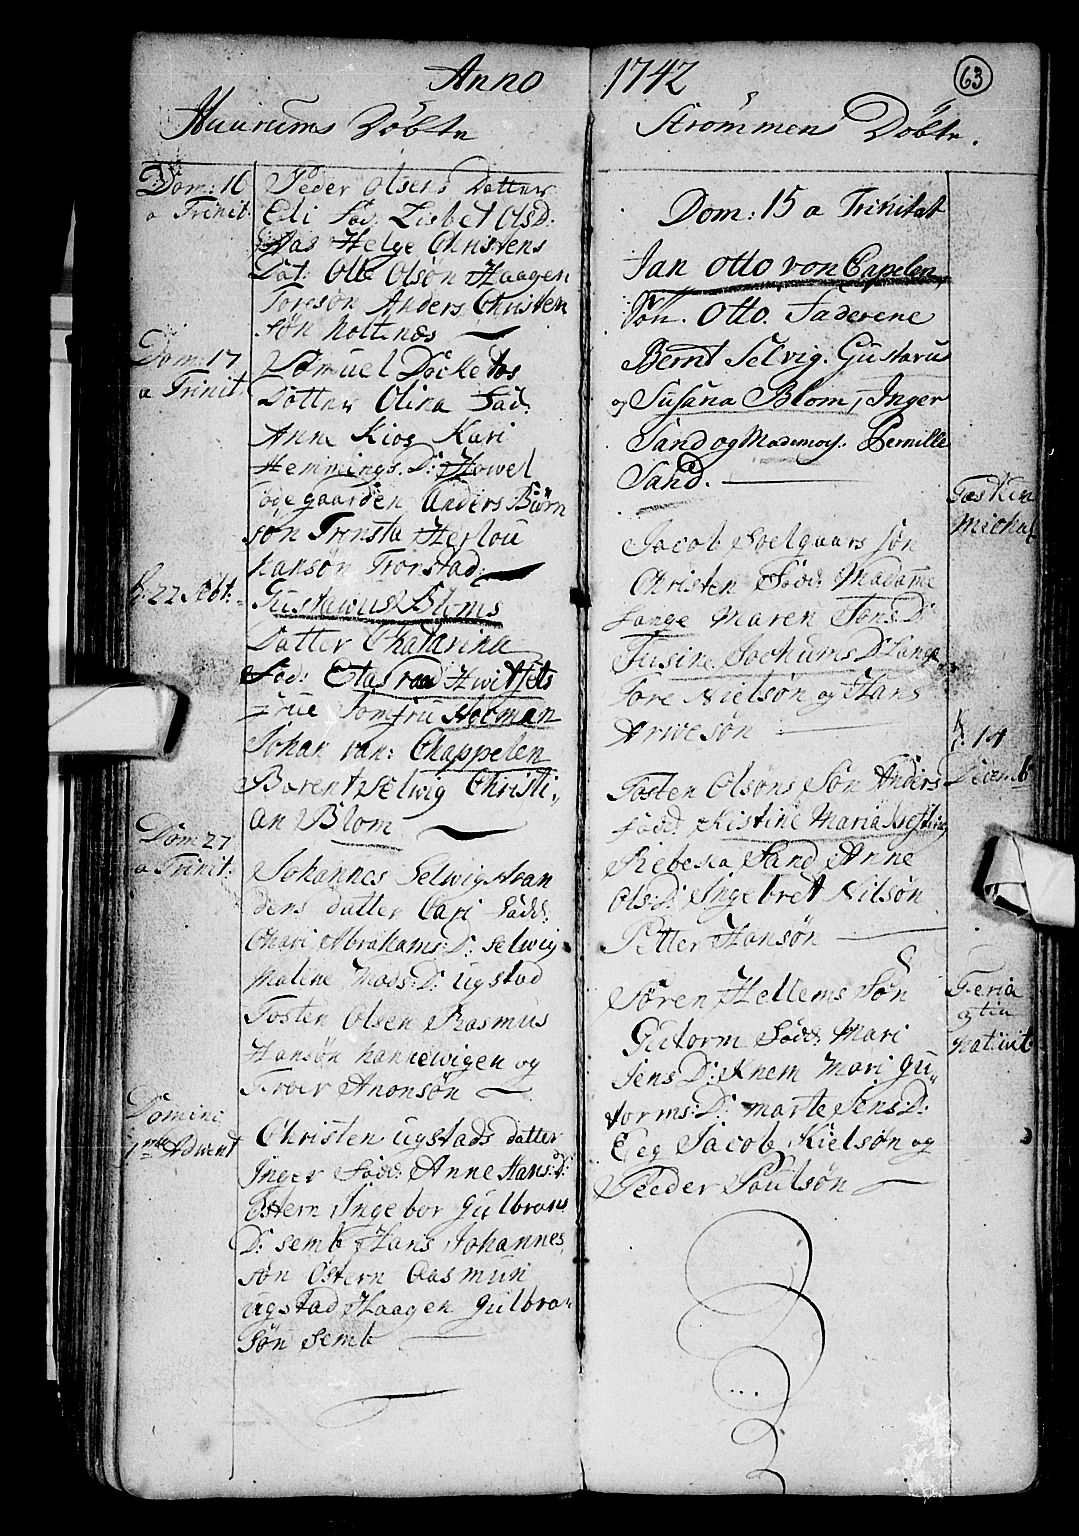 Anno 1742
63
Huurums Döbte
Dom: 16
a Trinit.
Peder Olsens Datter
Eli Fad. Lisbet Ols D:
Aas Helge Christens
Dat: Ole Olsøn Haagen
Toresøn Anders Christen
søn holtnæs
Dom: 17
a Trinit
Samuel
Datter Olina Fad:
Anne Kios Kari
Hemmings. D: Howel
ødegaarden Anders Biørn
søn Tronsta Herlou
hansøn Trorstad.
d: 22 Sebt:
Gustavus Bloms
Datter Chatarina
Fad: Etas raad Hwitfets
frue Jomfru Nobman
Johan van: Chappelen
Barent Selwig Christi
an Blom
Dom 27
a Trinit:
Johannes Selwigstran
dens datter Cari Fadd:
Chari Abrahams: D: Selwig
Malene Mads: D: ugstad
Tosten Olsen Rasmus
Hansøn hannewigen og
Froer Anonsøn
Domini
1me Advent
Christen ugstads datter
Inger Fadd: Anne Hans: D:
Østern Ingebor Gulbrans
D: semb Hans Johannes
søn Østern Aasmun
ugstad Haagen Gulbra
søn Semb
Strømmens Döbte.
Dom: 15 a Trinitat
Jan Otto von Capelen
Søn. Otto. Faderene
Bernt Selvig. Gustavus
og Susana Blom, Inger
Sand og Mademois. Pernille
Sand.
Festum
Michal
Jacob Soelgaars søn
Christen Fadd: Madame
Lange Maren Jens D:
Jusine Jochums D: Lange
Tore Nielsøn og Hans
Arwesøn
d: 14
Decemb
Tosten Olsøns Søn Anders
fadd Kistine Maria
Rebeka Sand Anne
Ols: D: Ingebret Nilsøn
Petter Hansøn
Feria
Nativit
Søren Hellems Søn
Gutorm Fadd: Mari
Jens D: Knem Mari Gu
torms: D: marte Jens D:
Eeg Jacob Kielsøn og
Peder Poulsøn